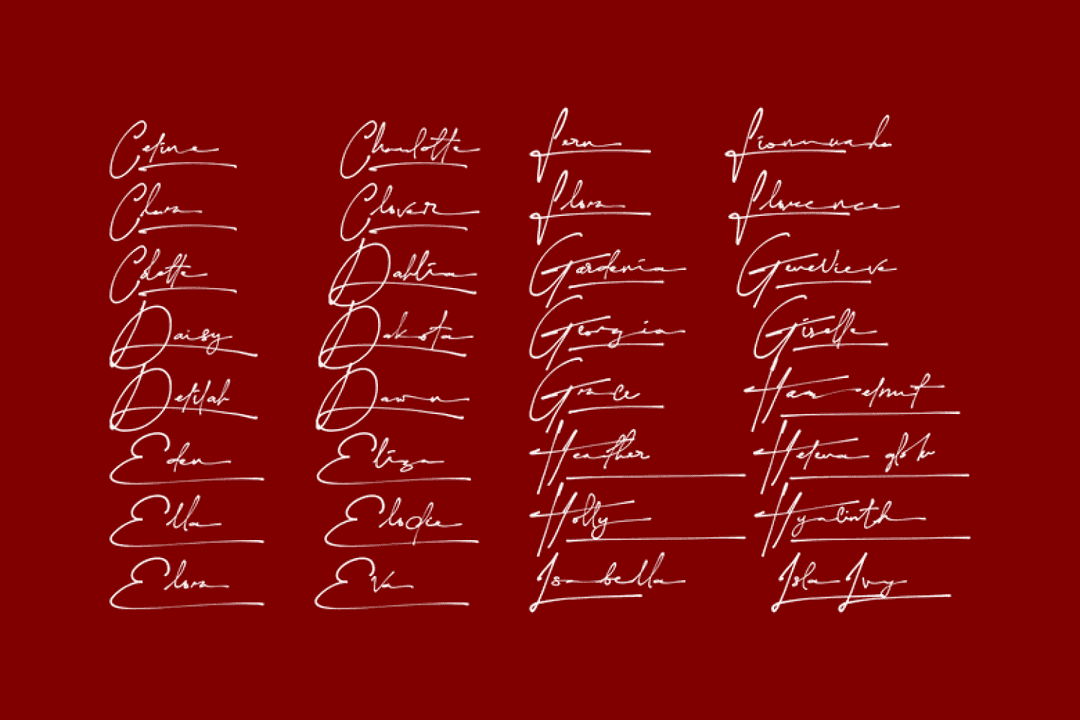 Celine
Charlotte
Fern
Clara
Clover
Flora
Florence
Colette
Dahlia
Gardenia
Genevieve
Daisy
Dakota
Georgia
Giselle
Delilah
Dawn
Grace
Eden
Eliza
Heather
Ella
Holly
Hyacinth
Elora
Eva
Isabella
Isla Ivy